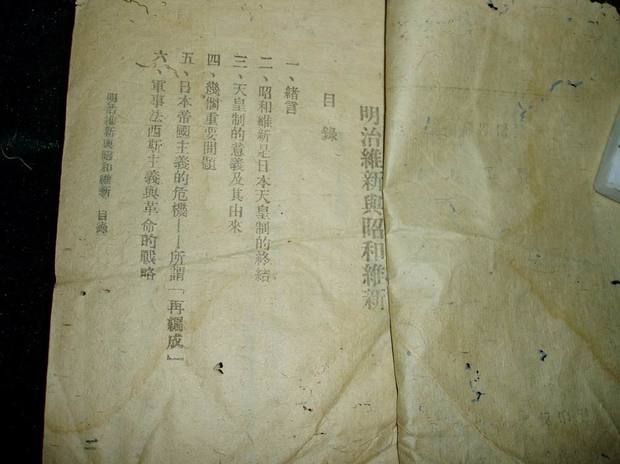 明治維新與昭和維新
目錄
一、緒言
二、昭和維新是日本天皇制的終結
三、天皇制的意義及其由來
四、幾個重要問題
五、日本帝國主義的危機——所謂「再編成」
六、軍事法西斯主義與革命的戰略
明治維新與昭和維新 目錄
二